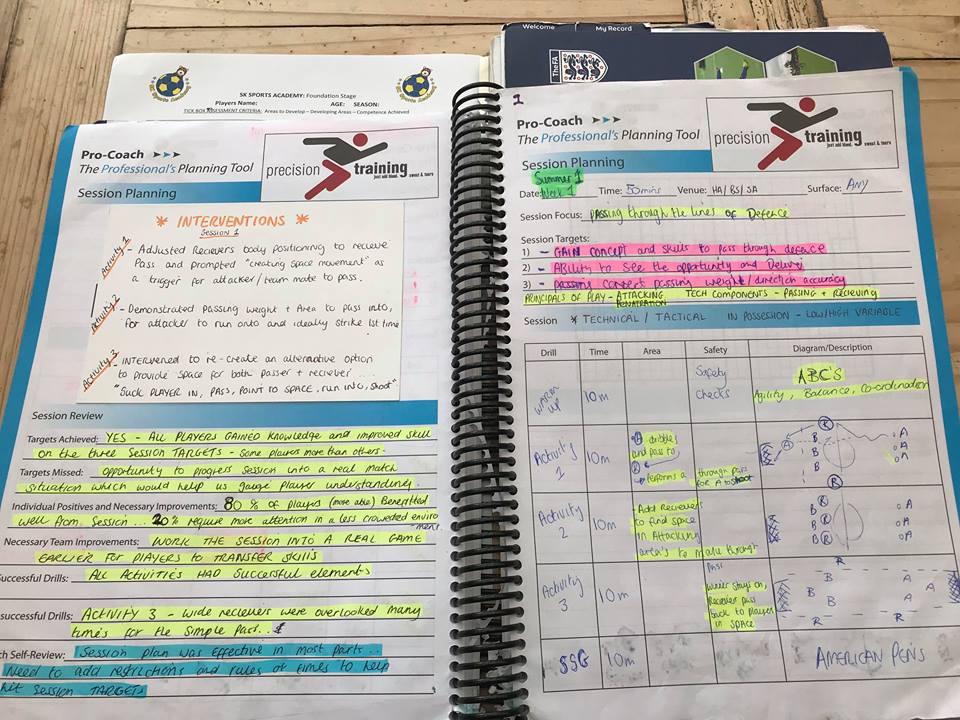 SK SPORTS ACADEMY: Foundation Stage
Players Name: AGE: SEASON:
TICK BOX ASSESSMENT CRITERIA: Areas to Develop – Developing Areas – Competence Achieved
Welcome My Record
The FA
Pro-Coach
The Professional's Planning Tool
precision training
just add blood, sweat & tears
Session Planning
* INTERVENTIONS *
SESSION 1
Activity 1
- Adjusted Recievers body positioning to recieve
Pass and prompted "creating space movement" as
a trigger for attacker/team mate to pass.
Activity 2
- Demonstrated Passing weight + Area to pass into,
for attacker to run onto and ideally strike 1st time
Activity 3
- INTERVENED to re-create an alternative option
to provide space for both passer + reciever....
"SUCK PLAYER IN, PASS, POINT TO SPACE, run INTO, shoot"
Session Review
Targets Achieved: YES - ALL PLAYERS GAINED KNOWLEDGE and improved skill
on the three SESSION TARGETS - Some players more than others.
Targets Missed: OPPORTUNITY to progress SESSION into a real match
situation which would help us gauge player understanding.
Individual Positives and Necessary Improvements: 80% of players (more able) Benefitted
well from Session... 20% require more attention in a less crowded enviro
ment.
Necessary Team Improvements: WORK THE SESSION INTO A REAL GAME
EARLIER FOR PLAYERS TO TRANSFER SKILLS
Successful Drills: ALL ACTIVITIES HAD SUCCESFUL elements
successful Drills: ACTIVITY 3 - wide recievers were overlooked many
time's for the Simple Part...
ch Self-Review: Session plan was effective in most parts..
Need to add restrictions and rules at times to help
hit Session TARGETS
1
Pro-Coach
The Professional's Planning Tool
precision training
just add blood, sweat & tears
Session Planning
Summer 1
Date: Week 1 Time: 50mins Venue: HA/BS/SA Surface: ANY
Session Focus: passing through the lines of Defence
Session Targets:
1) - GAIN concept and skills to pass through defence
2) - ABILITY to See the opportunity and Deliver
3) - passing correct passing weight/direction accuracy
PRINCIPALS OF PLAY - ATTACKING TECH COMPONENTS - PASSING + RECIEVING
PENATRATION
Session * TECHNICAL / TACTICAL IN POSSESSION - LOW/HIGH VARIABLE
Drill Time Area Safety Diagram/Description
WARM UP 10m Safety Checks ABC'S
Agility, Balance, Co-ordination
Activity 1 10m A dribble
and pass to
R
performs a through pass
for A to shoot
A B B B B R R A A A
Activity 2 10m Add Recievers
to find space
in Attacking
area's to make through
pass
B R B R B R A A A
Activity 3 10m
stays on,
Reciever pass
back to player
in space
R B B B A A A R R
SSG 10m AMERICAN PEN'S